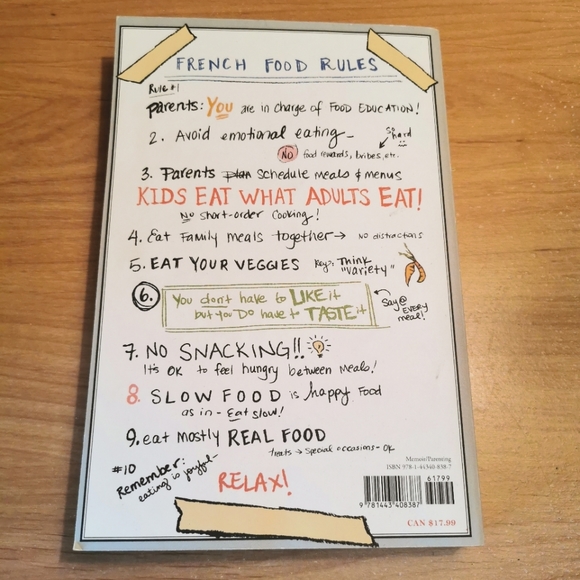 FRENCH FOOD RULES
Rule #1
Parents: You are in charge of FOOD EDUCATION!
2. Avoid emotional eating-
so hard
NO food rewards, bribes, etc.
3. Parents plan schedule meals & menus
KIDS EAT WHAT ADULTS EAT!
No short-order cooking!
4. Eat Family meals together → NO distractions
5. EAT YOUR VEGGIES Key: Think
"variety"
6. You don't have to LIKE it
but you DO have to TASTE it
Say @
EVERY
meal!
7. NO SNACKING!!
It's OK to feel hungry between Meals!
8. SLOW FOOD is happy Food
as in - Eat slow!
9. eat mostly REAL FOOD
treats → special occasions - OK
#10
Remember:
eating is joyful-
RELAX!
Memoir/Parenting
ISBN 978-1-44340-838-7
61799
9 781443 408387
CAN $17.99